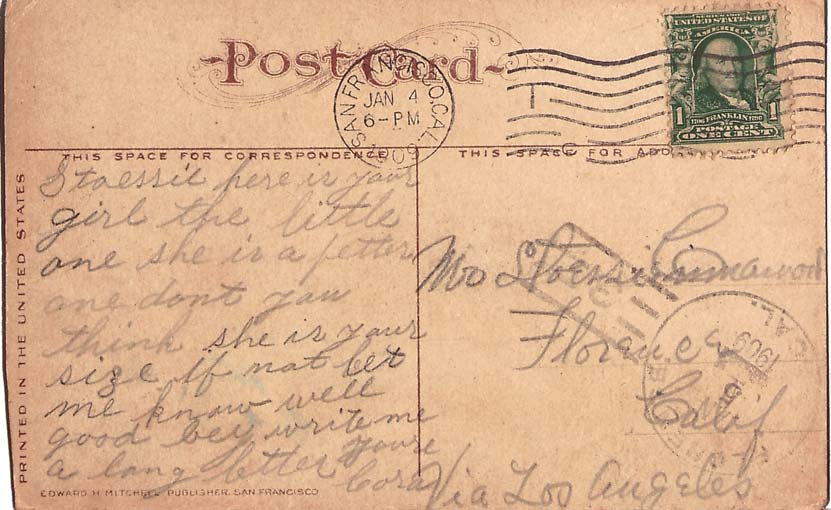 Post Card
SAN FRANCISCO, CAL.
JAN 4
6-PM
1909
SERIES 1902
UNITED STATES OF
AMERICA
1 1706 FRANKLIN 1790 1
POSTAGE
ONE CENT
THIS SPACE FOR CORRESPONDENCE
THIS SPACE FOR ADD
PRINTED IN THE UNITED STATES
Stoessie here is your
girl the little
one she is a petter
one dont you
think she is your
size if not let
me know well
good bey write me
a long letter youre
Cora
EDWARD H MITCHELL PUBLISHER, SAN FRANCISCO
Florence
Calif
Via Los Angeles
1909
CAL.